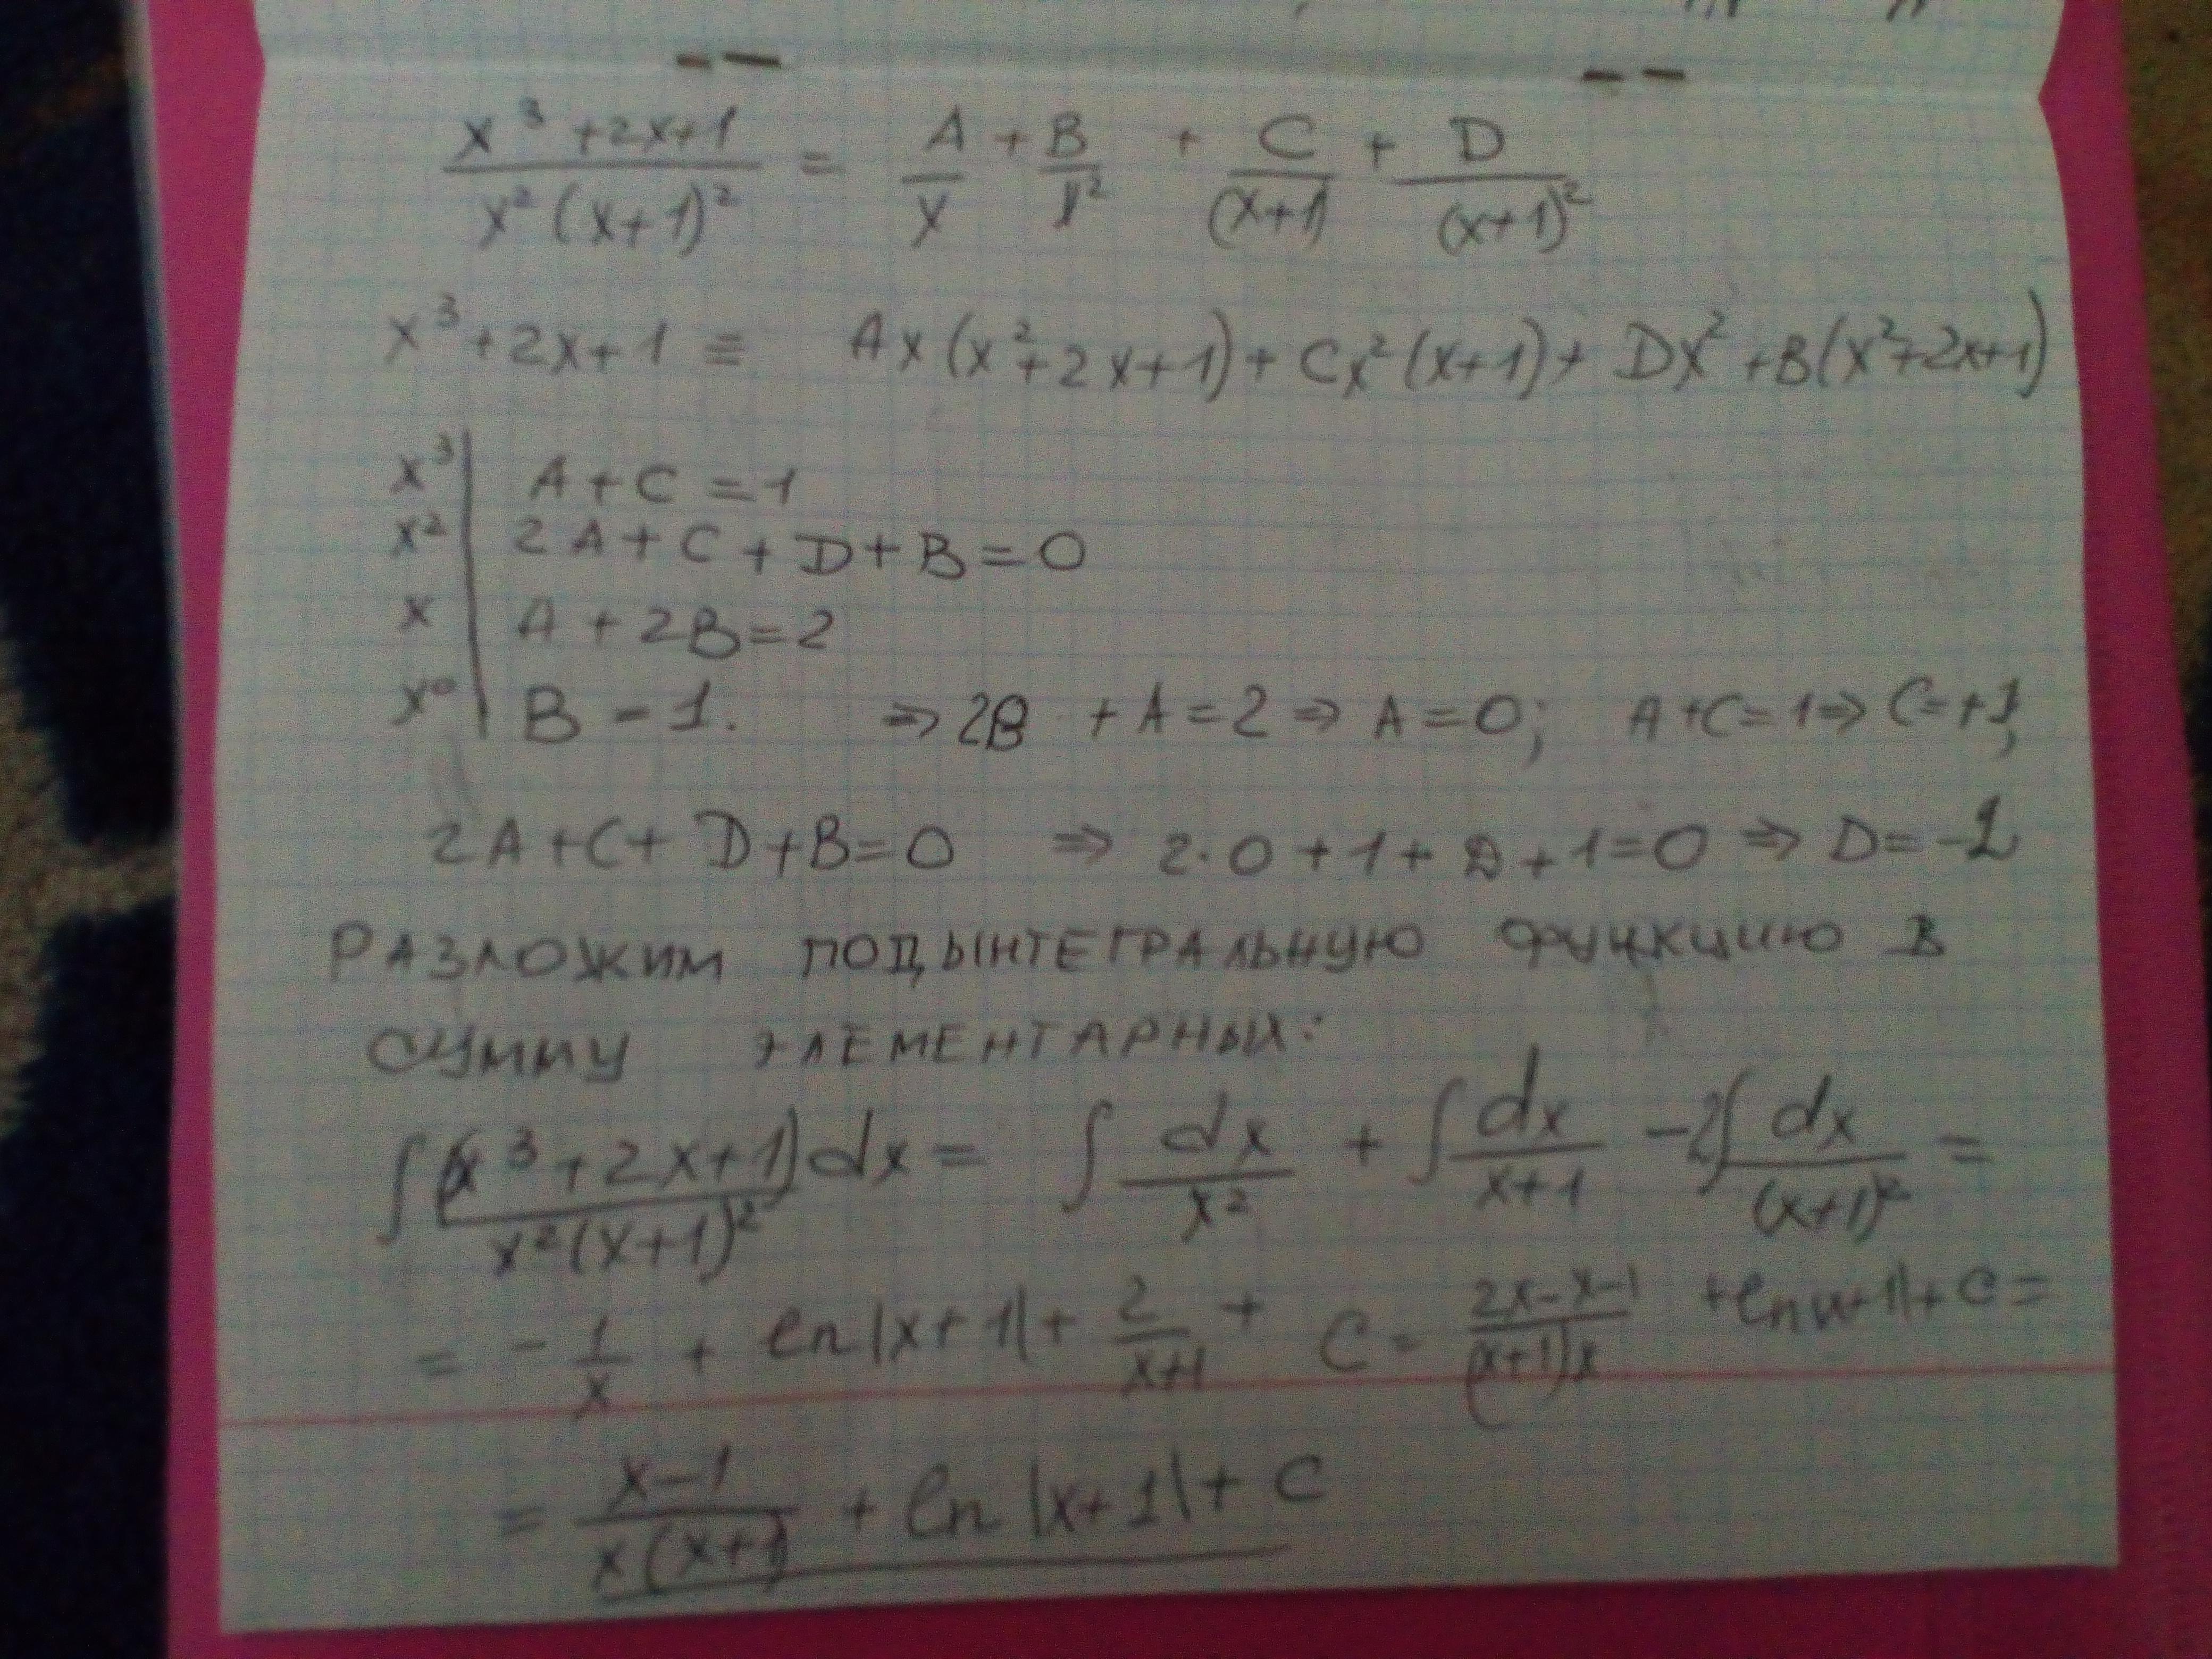 x³+2x+1 / x²(x+1)² = A/x + B/x² + C/(x+1) + D/(x+1)²
x³+2x+1 ≡ Ax(x²+2x+1)+Cx²(x+1)+Dx²+B(x²+2x+1)
x³ | A+C=1
x² | 2A+C+D+B=0
x | A+2B=2
x⁰ | B=1. ⇒ 2B+A=2 ⇒ A=0; A+C=1 ⇒ C=+1;
2A+C+D+B=0 ⇒ 2·0+1+D+1=0 ⇒ D=-2
РАЗЛОЖИМ ПОДЫНТЕГРАЛЬНУЮ ФУНКЦИЮ В
СУММУ ЭЛЕМЕНТАРНЫХ:
∫ (x³+2x+1)dx / x²(x+1)² = ∫ dx/x² + ∫ dx/(x+1) - 2∫ dx/(x+1)² =
= -1/x + ln|x+1| + 2/(x+1) + C = (2x-x-1)/((x+1)x) + ln|x+1| + C =
= (x-1)/(x(x+1)) + ln|x+1| + C